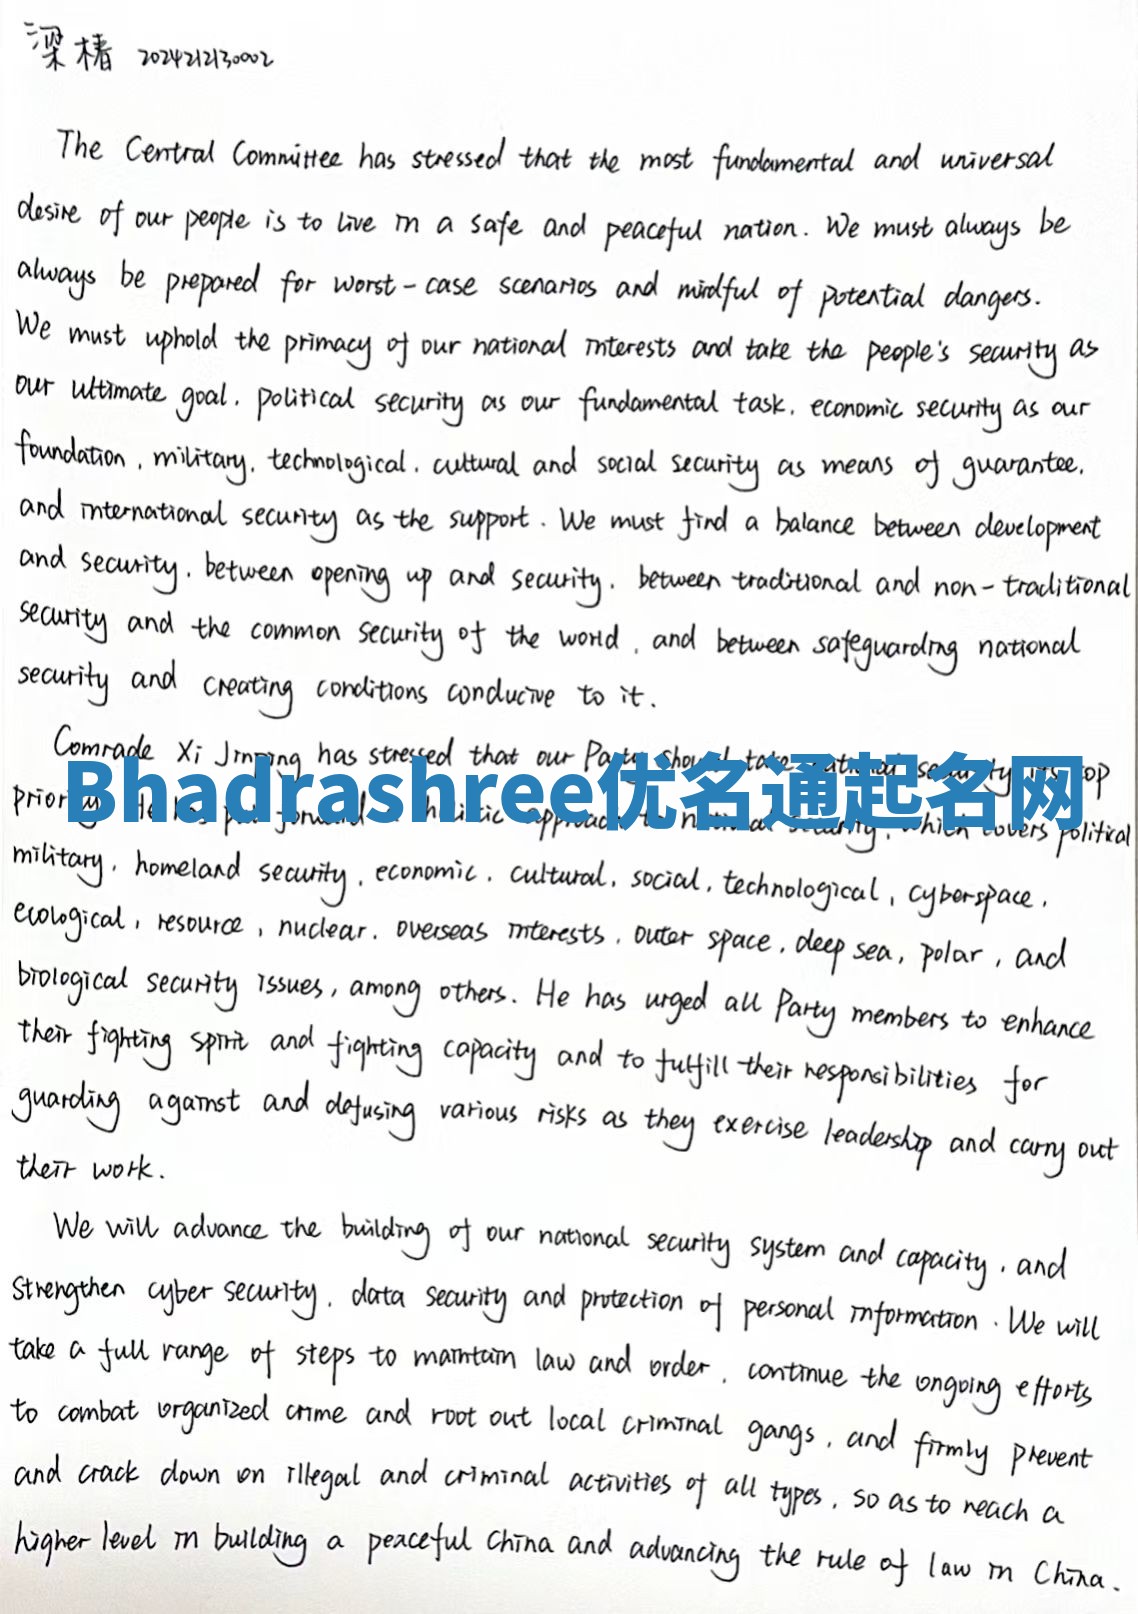 梁椿 2024212130002
The Central Committee has stressed that the most fundamental and universal
desire of our people is to live in a safe and peaceful nation. We must always be
always be prepared for worst-case scenarios and mindful of potential dangers.
We must uphold the primacy of our national interests and take the people's security as
our ultimate goal, political security as our fundamental task, economic security as our
foundation, military, technological, cultural and social security as means of guarantee,
and international security as the support. We must find a balance between development
and security, between opening up and security, between traditional and non-traditional
security and the common security of the world, and between safeguarding national
security and creating conditions conducive to it.
Comrade Xi Jinping has stressed that our Party should take national security its top
Bhadrashree优名通起名网
priority. He has put forward a holistic approach to national security, which covers political
military, homeland security, economic, cultural, social, technological, cyberspace,
ecological, resource, nuclear, overseas interests, outer space, deep sea, polar, and
biological security issues, among others. He has urged all Party members to enhance
their fighting spirit and fighting capacity and to fulfill their responsibilities for
guarding against and defusing various risks as they exercise leadership and carry out
their work.
We will advance the building of our national security system and capacity, and
strengthen cyber security, data security and protection of personal information. We will
take a full range of steps to maintain law and order, continue the ongoing efforts
to combat organized crime and root out local criminal gangs, and firmly prevent
and crack down on illegal and criminal activities of all types, so as to reach a
higher level in building a peaceful China and advancing the rule of law in China.